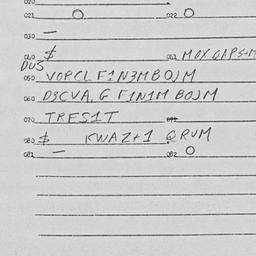 020
021 O 022 O
030 —
040 $ 041 MOXQAPS+M
DUS
050 VORCL F1N3M BO)M
060 D3CVA, G F1N1M BO)M
070 TRES1T
080 $ KWAZ+1 QRVM
081 — 082 O